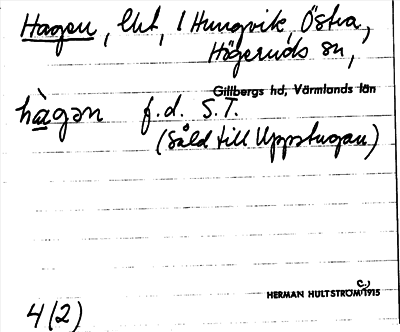 Hagen, lht, i Hungvik, Östra,
Högeruds sn,
Gillbergs hd, Värmlands län
hàgən f.d. S.T.
(Såld till Uppstugan)
HERMAN HULTSTRÖM c. 1915
4(2)